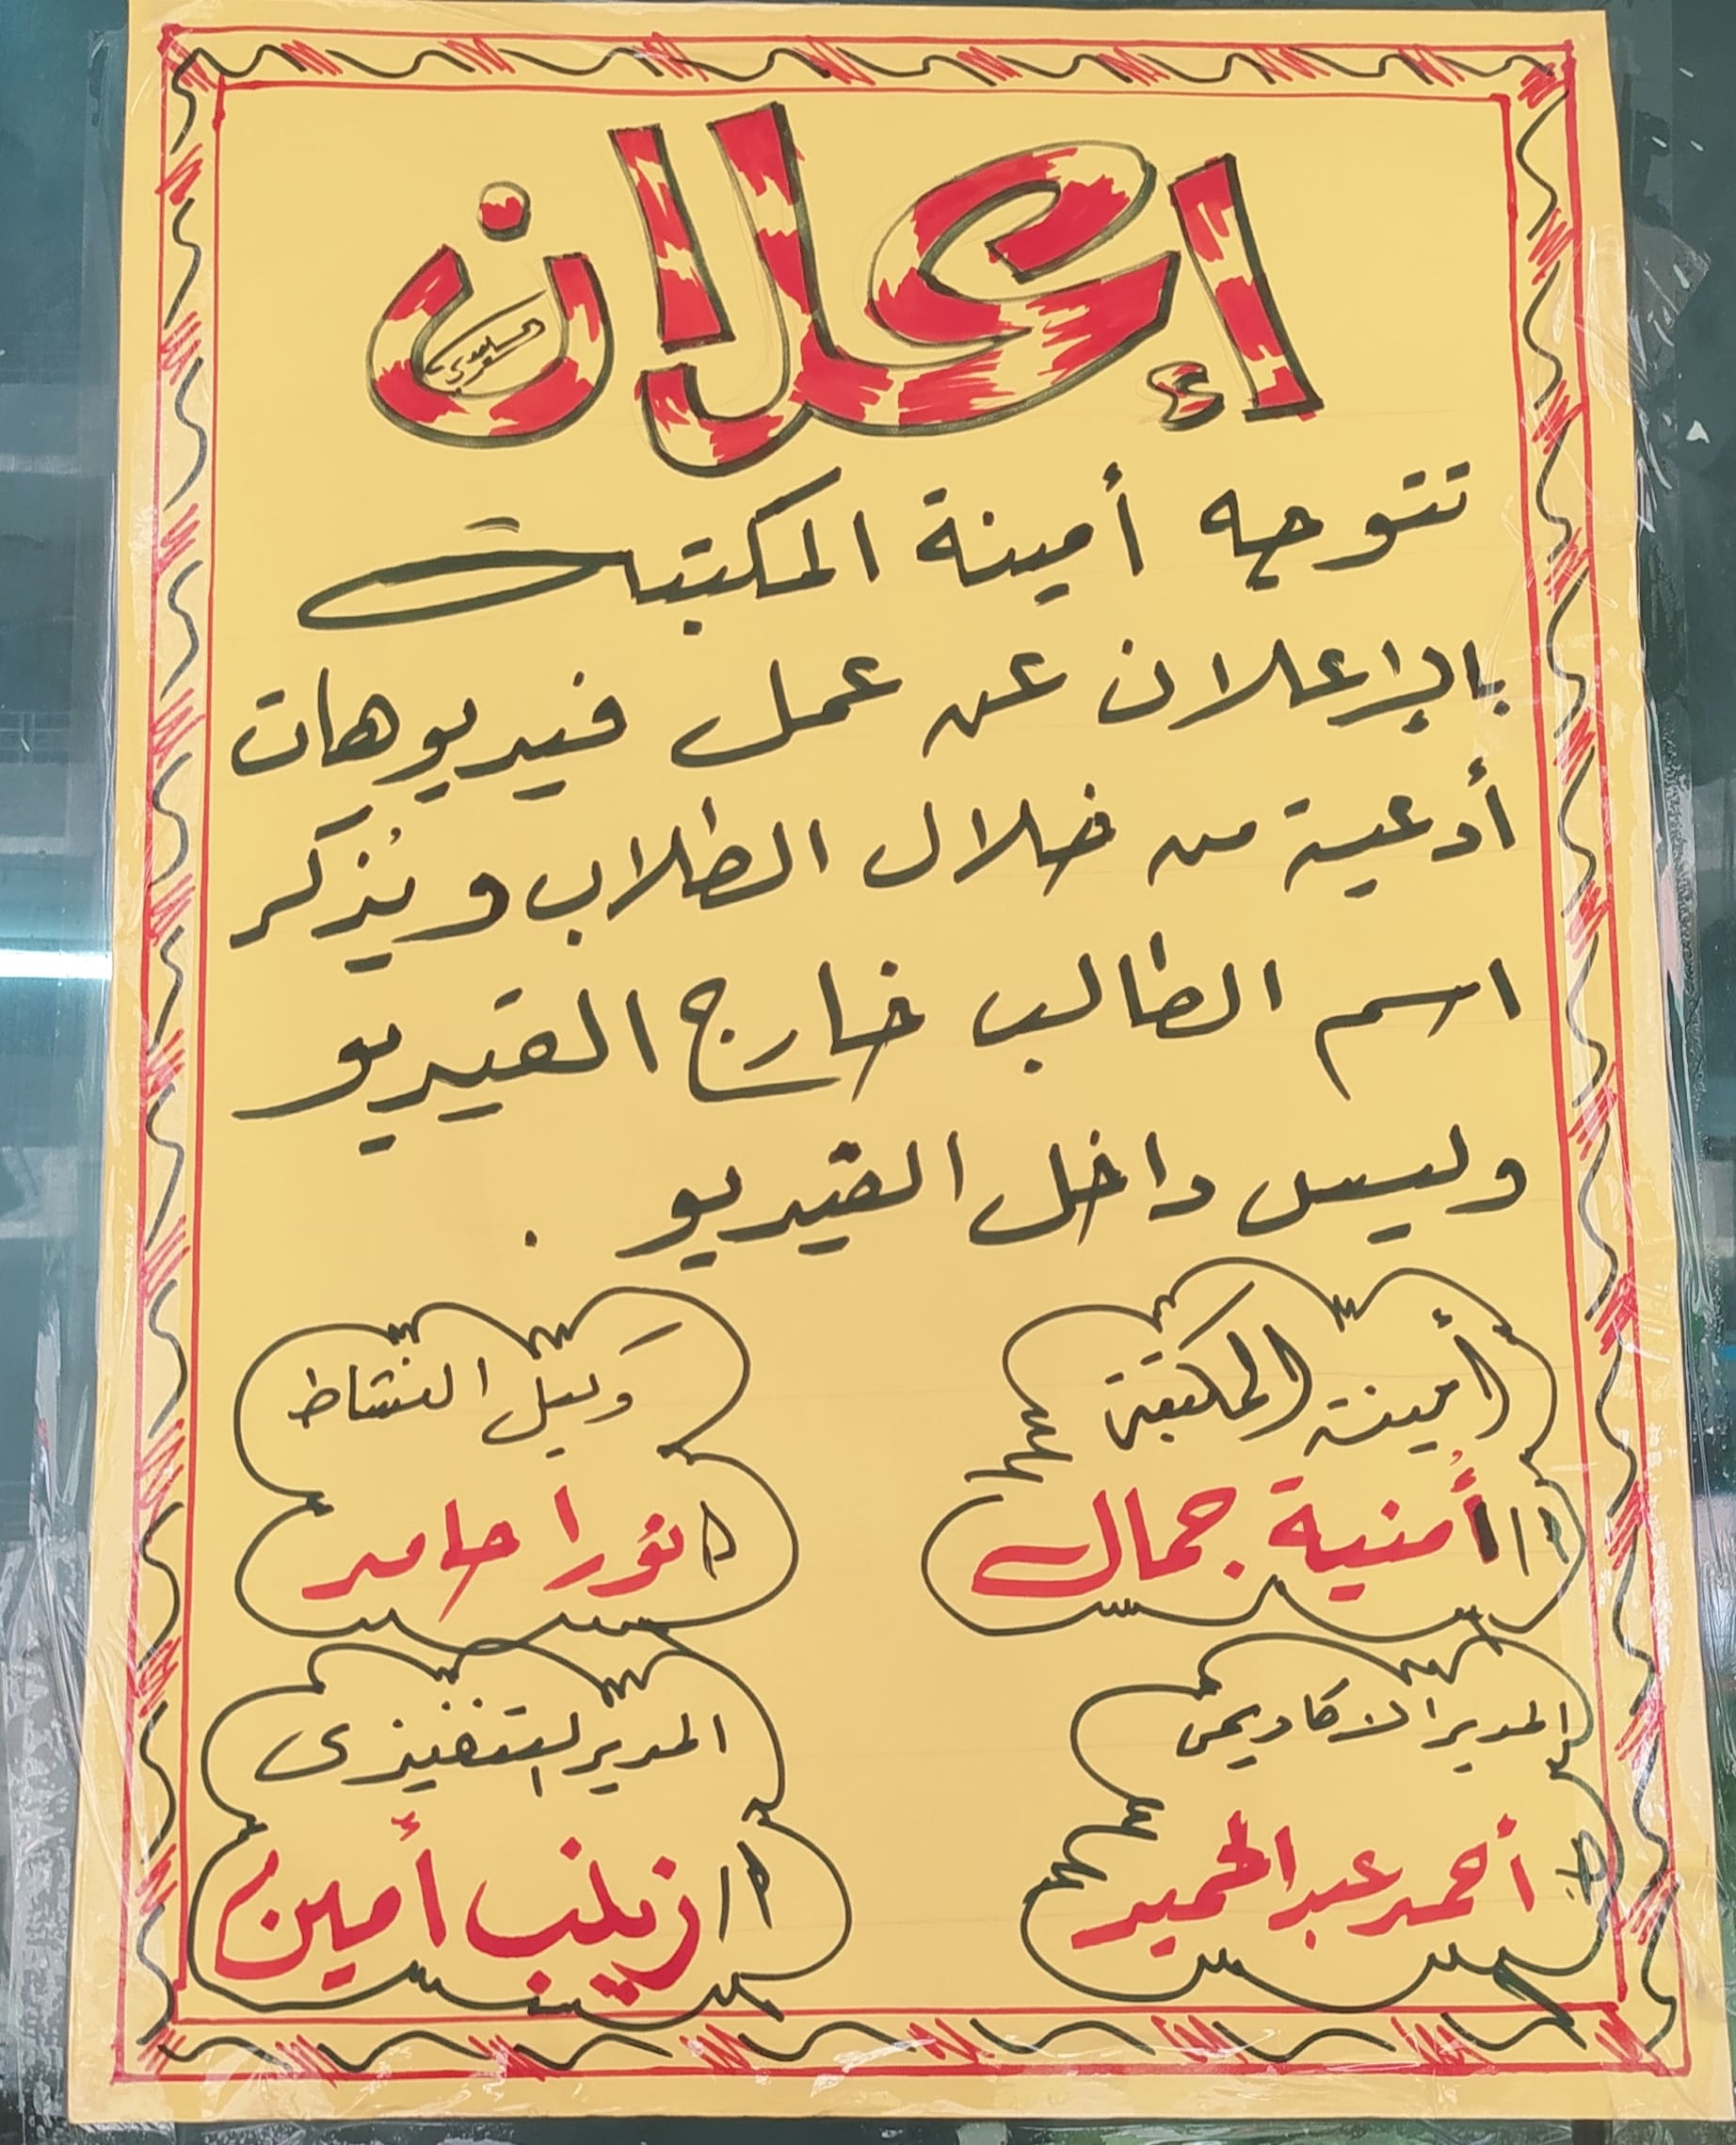 إعلان
تتوجه أمينة المكتبة
بالإعلان عن عمل فيديوهات
أدعية من خلال الطلاب ويُذكر
اسم الطالب خارج الفيديو
وليس داخل الفيديو .
أمينة المكتبة
أ/ أُمنية جمال
وكيل النشاط
أ/ نورا حامد
المدير الاكاديمى
أ/ أحمد عبد الحميد
المدير التنفيذى
أ/ زينب أمين